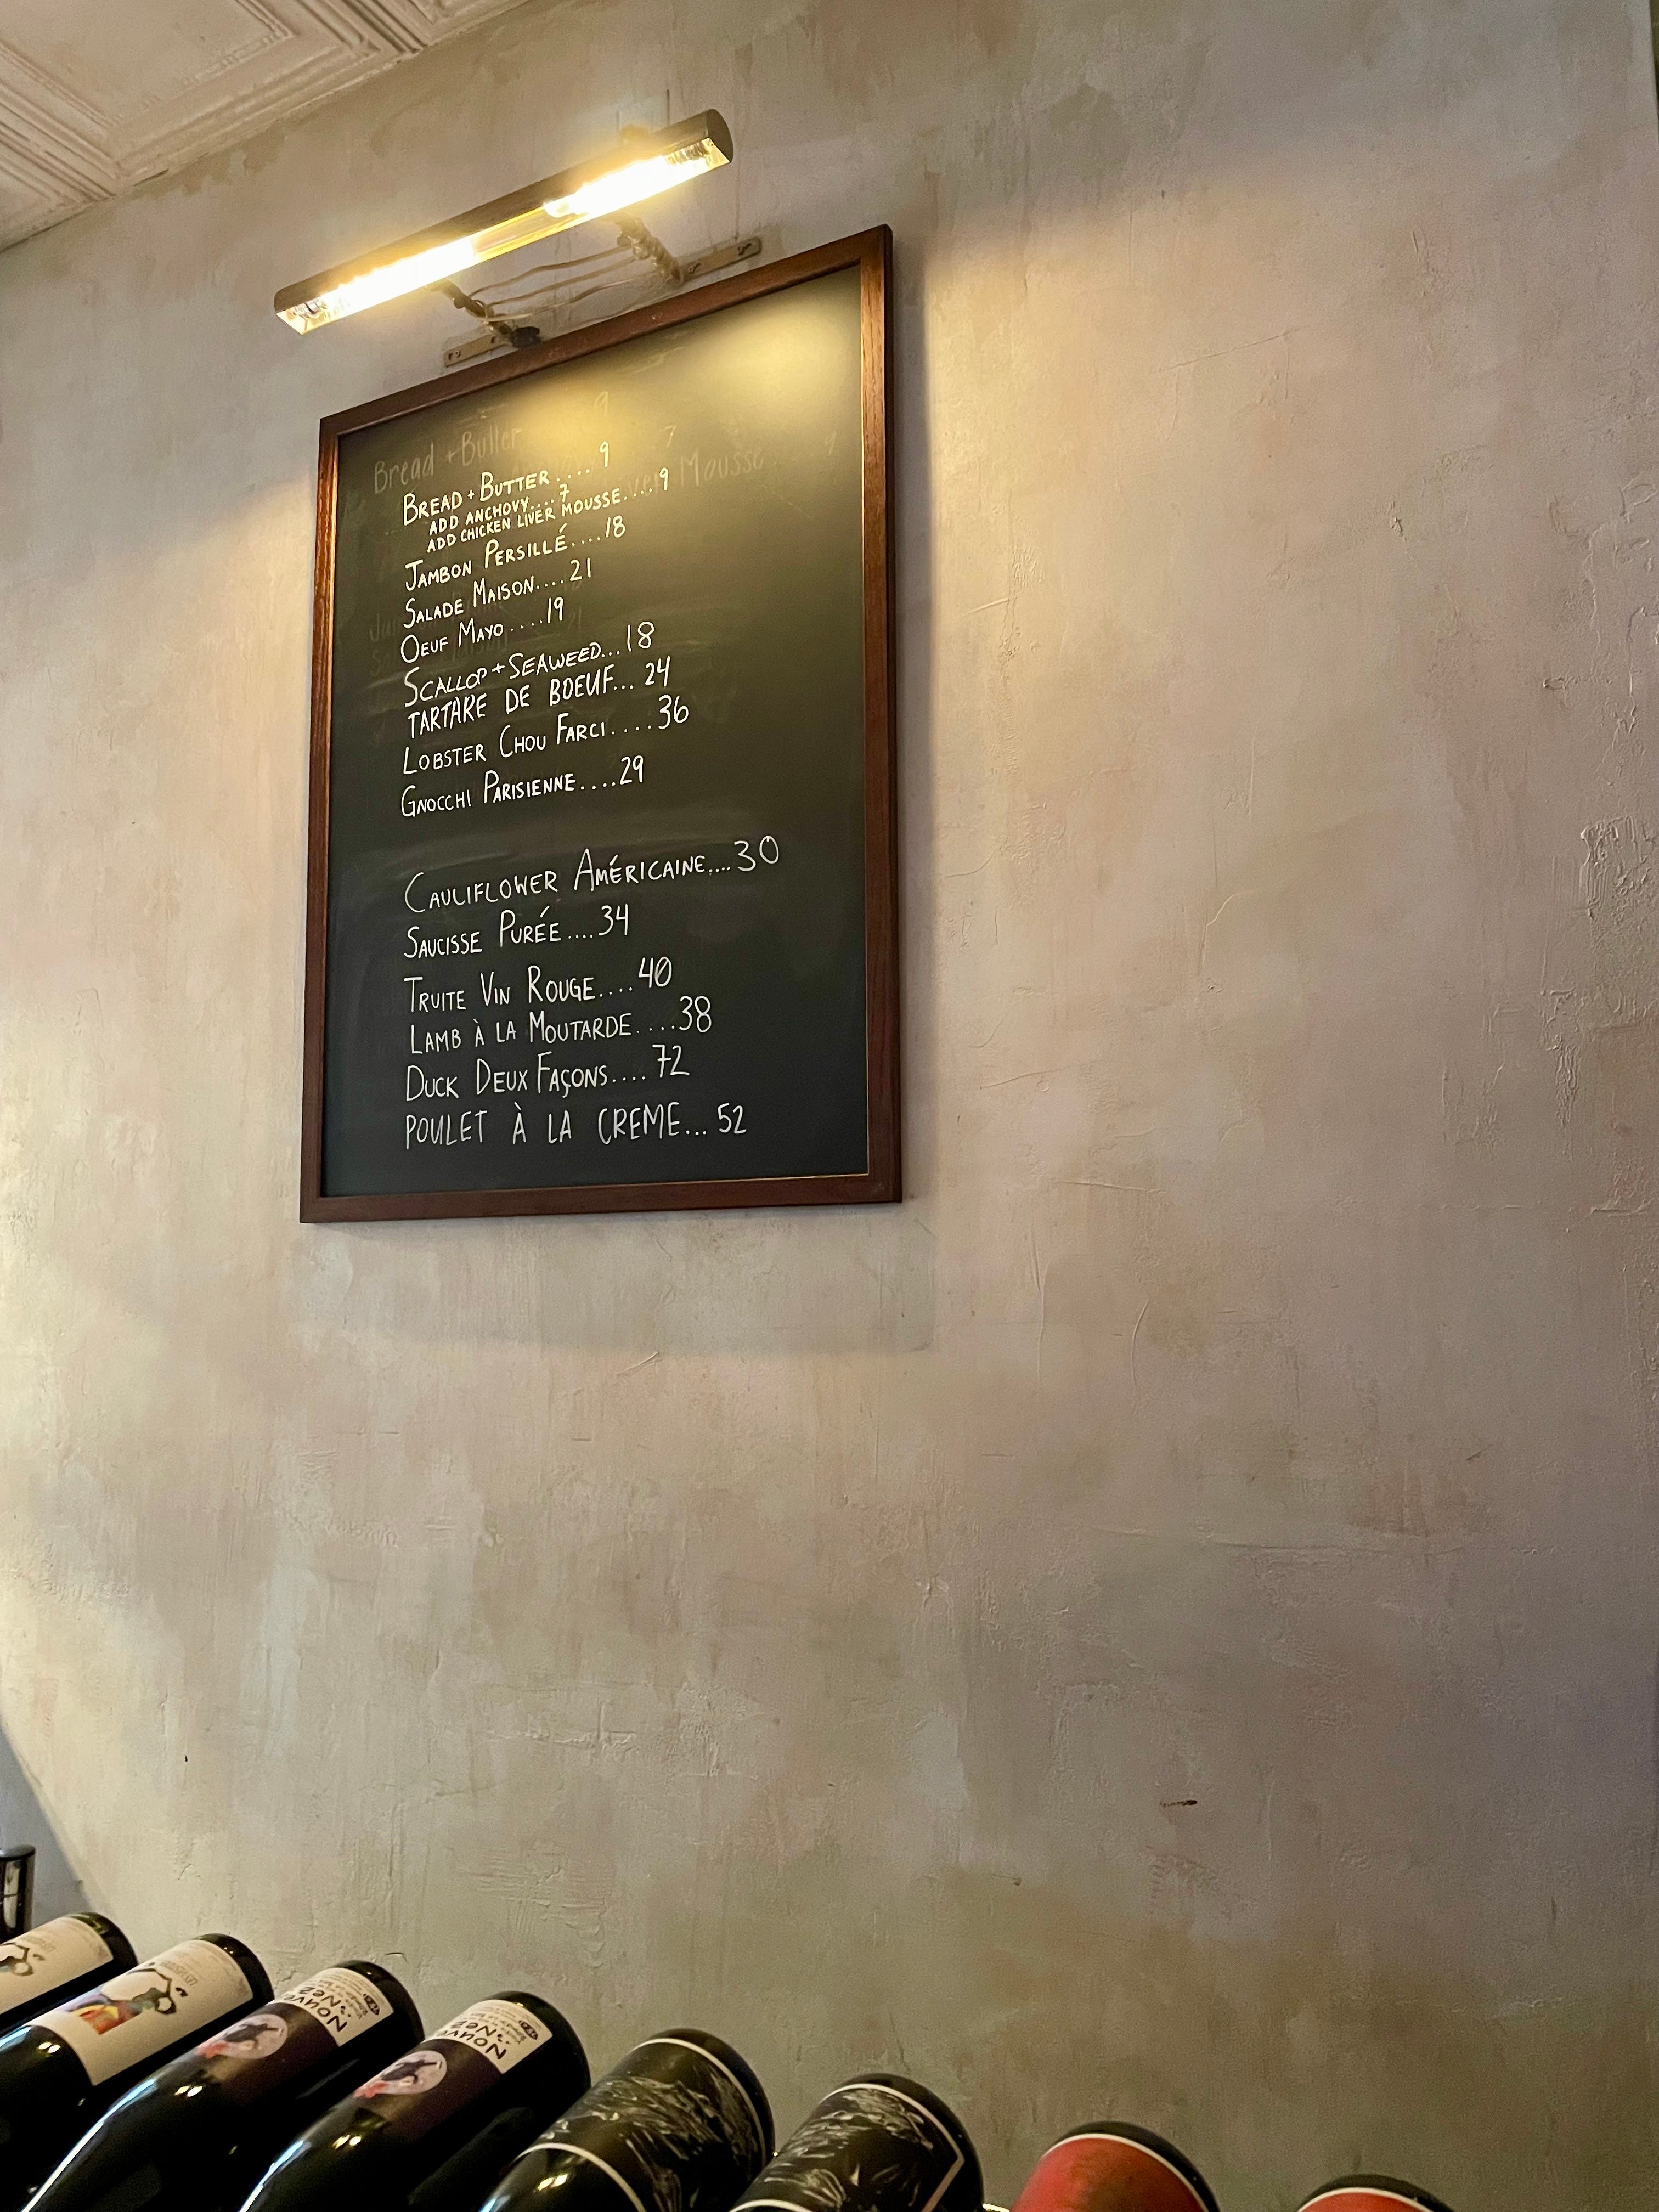 BREAD + BUTTER....9
ADD ANCHOVY....7
ADD CHICKEN LIVER MOUSSE....9
JAMBON PERSILLÉ....18
SALADE MAISON....21
OEUF MAYO....19
SCALLOP + SEAWEED...18
TARTARE DE BOEUF...24
LOBSTER CHOU FARCI....36
GNOCCHI PARISIENNE....29
CAULIFLOWER AMÉRICAINE....30
SAUCISSE PURÉE....34
TRUITE VIN ROUGE....40
LAMB À LA MOUTARDE....38
DUCK DEUX FAÇONS....72
POULET À LA CREME...52